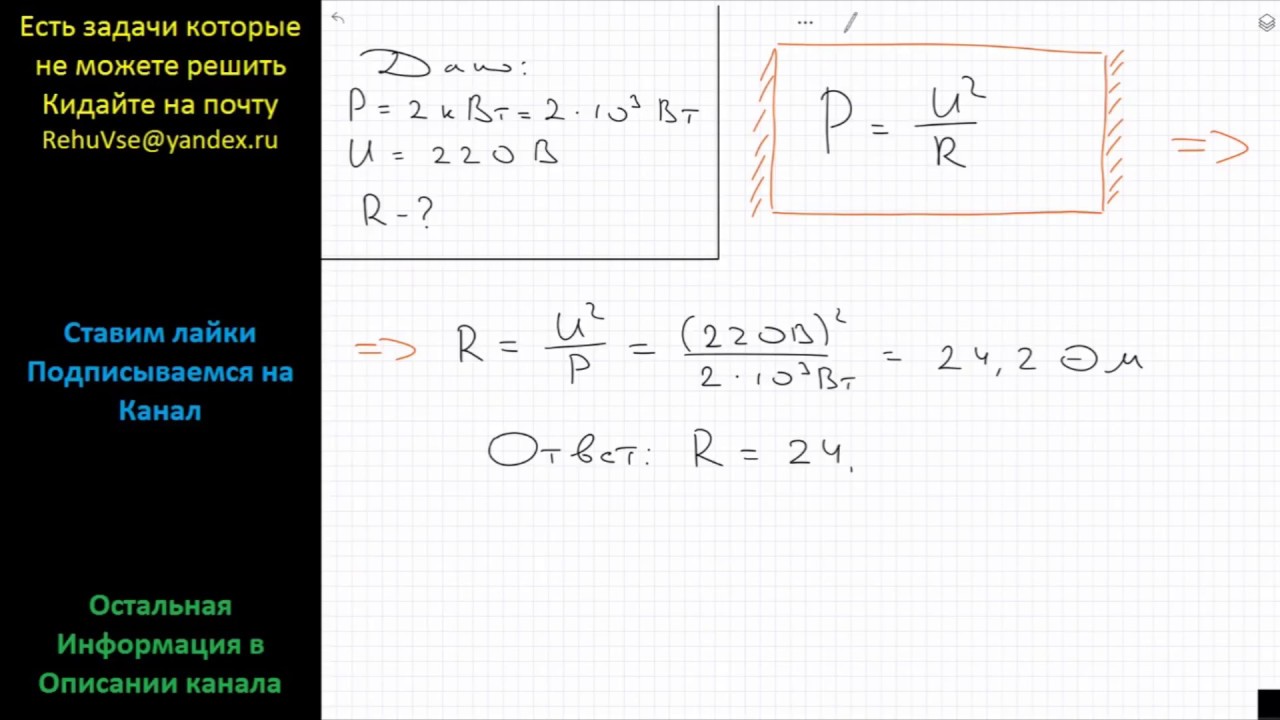 Есть задачи которые
не можете решить
Кидайте на почту
RehuVse@yandex.ru
Ставим лайки
Подписываемся на
Канал
Остальная
Информация в
Описании канала
Дано:
P = 2 кВт = 2 · 10³ Вт
U = 220 В
R - ?
...
P = U² / R =>
=> R = U² / P = (220В)² / 2 · 10³ Вт = 24,2 Ом
Ответ: R = 24,